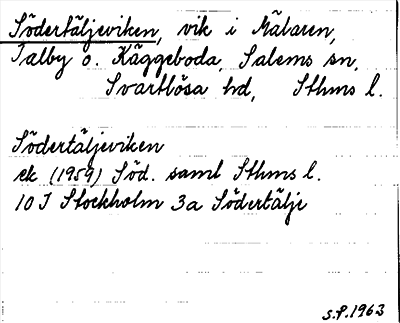 Södertäljeviken, vik i Mälaren,
Talby o. Käggeboda, Salems sn,
Svartlösa hd, Sthms l.
Södertäljeviken
ek (1959) Söd. saml Sthms l.
10 I Stockholm 3a Södertälje
S.P. 1963